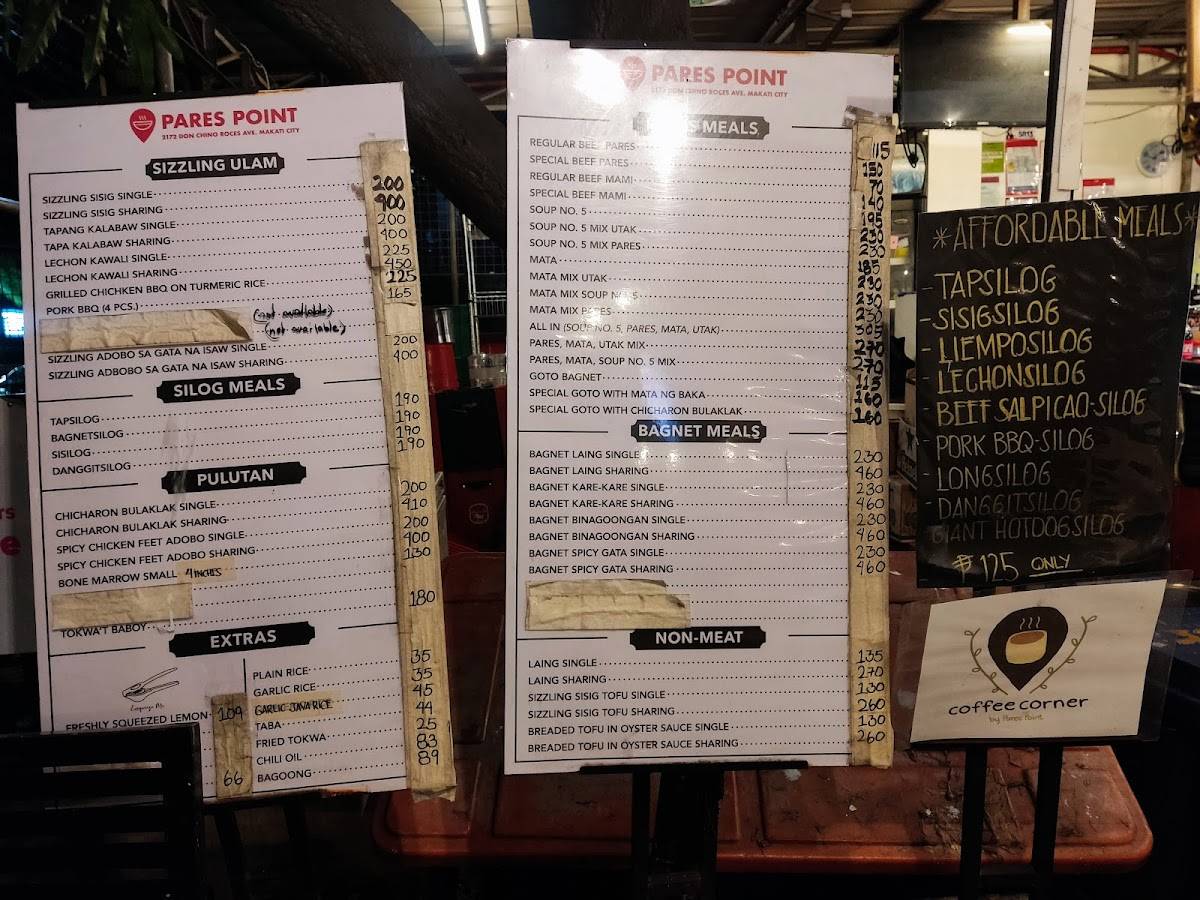 PARES POINT
2172 DON CHINO ROCES AVE. MAKATI CITY
SIZZLING ULAM
SIZZLING SISIG SINGLE 200
SIZZLING SISIG SHARING 400
TAPANG KALABAW SINGLE 200
TAPA KALABAW SHARING 400
LECHON KAWALI SINGLE 225
LECHON KAWALI SHARING 450
GRILLED CHICHKEN BBQ ON TURMERIC RICE 225
PORK BBQ (4 PCS.) 165
(not available)
(not available)
SIZZLING ADOBO SA GATA NA ISAW SINGLE 200
SIZZLING ADBOBO SA GATA NA ISAW SHARING 400
SILOG MEALS
TAPSILOG 190
BAGNETSILOG 190
SISILOG 190
DANGGITSILOG 190
PULUTAN
CHICHARON BULAKLAK SINGLE 200
CHICHARON BULAKLAK SHARING 410
SPICY CHICKEN FEET ADOBO SINGLE 200
SPICY CHICKEN FEET ADOBO SHARING 400
BONE MARROW SMALL 4 INCHES 130
TOKWA'T BABOY 180
EXTRAS
FRESHLY SQUEEZED LEMON 109
66
PLAIN RICE 35
GARLIC RICE 35
GARLIC JAVA RICE 45
TABA 44
FRIED TOKWA 25
CHILI OIL 83
BAGOONG 89
PARES POINT
2172 DON CHINO ROCES AVE. MAKATI CITY
MEALS
REGULAR BEEF PARES 115
SPECIAL BEEF PARES 150
REGULAR BEEF MAMI 70
SPECIAL BEEF MAMI 140
SOUP NO. 5 195
SOUP NO. 5 MIX UTAK 230
SOUP NO. 5 MIX PARES 230
MATA 185
MATA MIX UTAK 230
MATA MIX SOUP NO. 5 230
MATA MIX PARES 230
ALL IN (SOUP NO. 5, PARES, MATA, UTAK) 305
PARES, MATA, UTAK MIX 270
PARES, MATA, SOUP NO. 5 MIX 270
GOTO BAGNET 115
SPECIAL GOTO WITH MATA NG BAKA 160
SPECIAL GOTO WITH CHICHARON BULAKLAK 160
BAGNET MEALS
BAGNET LAING SINGLE 230
BAGNET LAING SHARING 460
BAGNET KARE-KARE SINGLE 230
BAGNET KARE-KARE SHARING 460
BAGNET BINAGOONGAN SINGLE 230
BAGNET BINAGOONGAN SHARING 460
BAGNET SPICY GATA SINGLE 230
BAGNET SPICY GATA SHARING 460
NON-MEAT
LAING SINGLE 135
LAING SHARING 270
SIZZLING SISIG TOFU SINGLE 130
SIZZLING SISIG TOFU SHARING 260
BREADED TOFU IN OYSTER SAUCE SINGLE 130
BREADED TOFU IN OYSTER SAUCE SHARING 260
*AFFORDABLE MEALS*
- TAPSILOG
- SISIGSILOG
- LIEMPOSILOG
- LECHONSILOG
- BEEF SALPICAO-SILOG
- PORK BBQ-SILOG
- LONGSILOG
- DANGGITSILOG
- GIANT HOTDOGSILOG
₱125 ONLY
coffee corner
by Pares Point